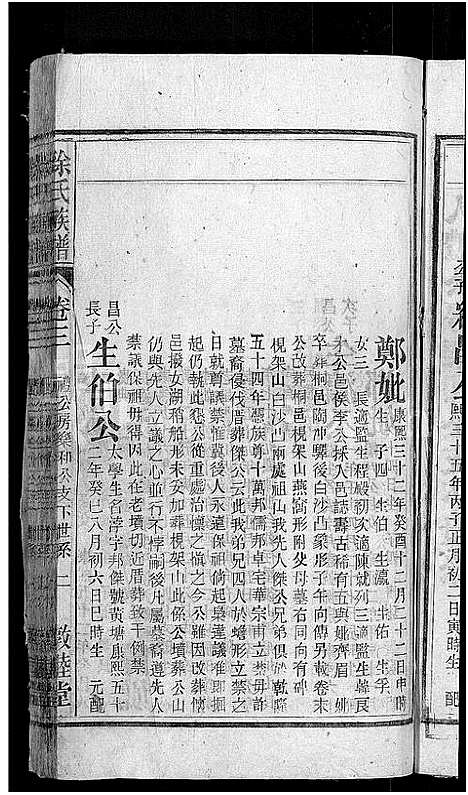 熙三十五年丙子正月初二日寅時生 配
鄭妣
康熙三十二年癸酉十二月二十二日申時
生 子四 生伯 生瀛 生佑 生孚
女三 長適監生程殿初次適陳就列三適監生韓艮
才公邑侯李公採入邑誌壽古稀有五與姚齊眉 姚
卒 葬桐邑陶冲驛後白沙凸象形子午向傳另載卷末
公改葬桐邑梘架山燕窩形附父母墓右同向有碑
梘架山白沙凸兩處祖山我先人傑公兄弟俱於乾隆
五十四年憑族尊十萬邦儒邦卓宅華宗甫立禁毋許
墓裔侵伐厝葬傑公云此我弟兄四人於蟾形立禁之
日就尊誤禁惟冀後人永遠保祖倘起梟蓮議准即掘
起仍執此懇公從重處治懷之慎之今公雖因改葬懷
邑撥女湖稍船形未妥加葬梘架山此係公墳葬公山
仍與先人立議之心並行不悖嗣後凡屬墓裔道先人
禁議保祖毋得因此在老墳切近厝葬致干例禁
昌公長子
生伯公
太學生名浮字邦傑號黃塘康熙五十
二年癸巳八月初六日巳時生 元配
徐氏族譜
卷三
公房榮和公支下世系
二
敦睦堂